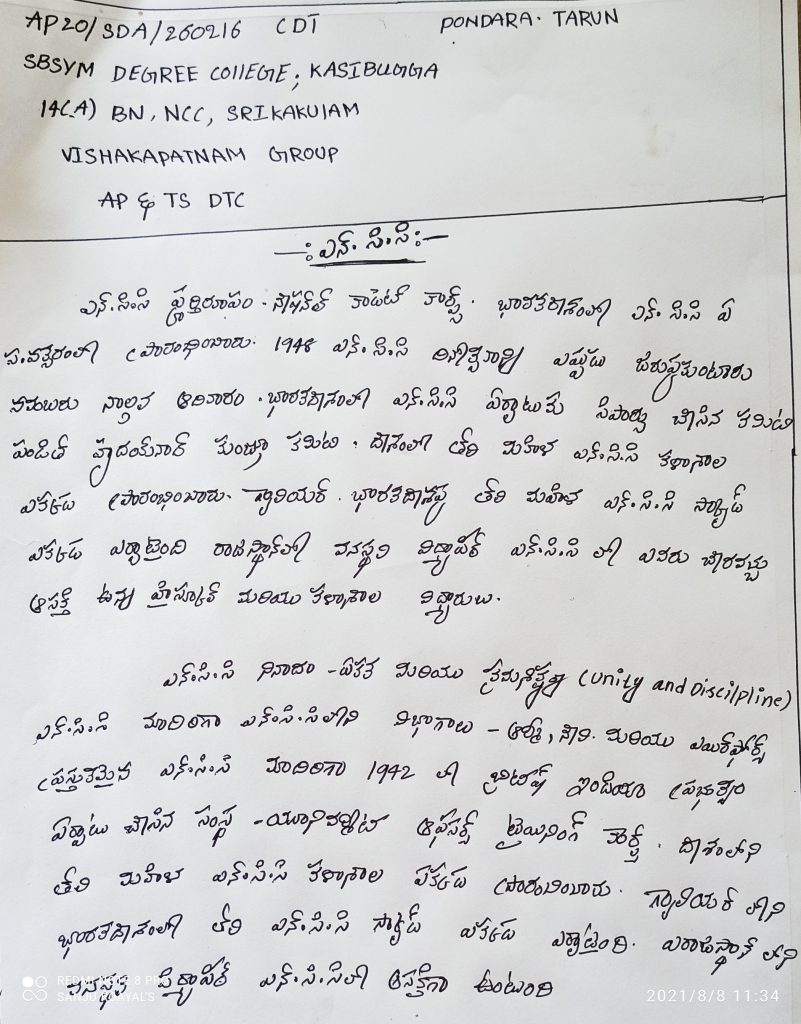 AP20/SDA/260216 CDT PONDARA. TARUN
SBSYM DEGREE COllEGE, KASIBUGGA
14(A) BN, NCC, SRIKAKUlAM
VISHAKAPATNAM GROUP
AP & TS DTC
—: ఎన్. సి.సి :—
ఎన్.సి.సి పూర్తిరూపం - నేషనల్ కాడెట్ కార్ప్స్. భారతదేశంలో ఎన్. సి.సి ఏ
సంవత్సరంలో ప్రారంభించారు. 1948 ఎన్.సి.సి దినోత్సవాన్ని ఎప్పుడు జరుపుకుంటారు
నవంబరు నాల్గవ ఆదివారం. భారతదేశంలో ఎన్.సి.సి ఏర్పాటుకు సిఫార్సు చేసిన కమిటి
పండిత్ హృదయ్‌నాథ్ కుంజ్రూ కమిటి. దేశంలో తొలి మహిళ ఎన్.సి.సి కళాశాల
ఎక్కడ ప్రారంభించారు. గ్వాలియర్. భారతదేశపు తొలి మహిళ ఎన్.సి.సి స్క్వాడ్
ఎక్కడ ఏర్పాటైంది రాజస్థాన్‌లో వనస్థలి విద్యాపీఠ్ ఎన్.సి.సి లో ఎవరు చేరవచ్చు
ఆసక్తి ఉన్న హైస్కూల్ మరియు కళాశాల విద్యారులు.
ఎన్.సి.సి నినాదం - ఏకత మరియు క్రమశిక్షణ (unity and Discilpline)
ఎన్.సి.సి మాదిరిగా ఎన్.సి.సిలోని విభాగాలు - ఆర్మీ, నేవి. మరియు ఎయిర్‌ఫోర్స్
ప్రస్తుతమైన ఎన్.సి.సి మాదిరిగా 1942 లో బ్రిటిష్ ఇండియా ప్రభుత్వం
ఏర్పాటు చేసిన సంస్థ - యూనివర్శిటి ఆఫీసర్స్ ట్రైయినింగ్ కార్ప్స్. దేశంలోని
తొలి మహిళ ఎన్.సి.సి కళాశాల ఎక్కడ ప్రారంబించారు. గ్వాలియర్ లోని
భారతదేశంలో తొలి ఎన్.సి.సి స్క్వాడ్ ఎక్కడ ఏర్పాటైంది. లోని
ఎన్.సి.సిలో ఆసక్తిగా ఉంటుంది
REDMI NOTE 8 PRO
SANJU ROAYAL'S
2021/8/8 11:34